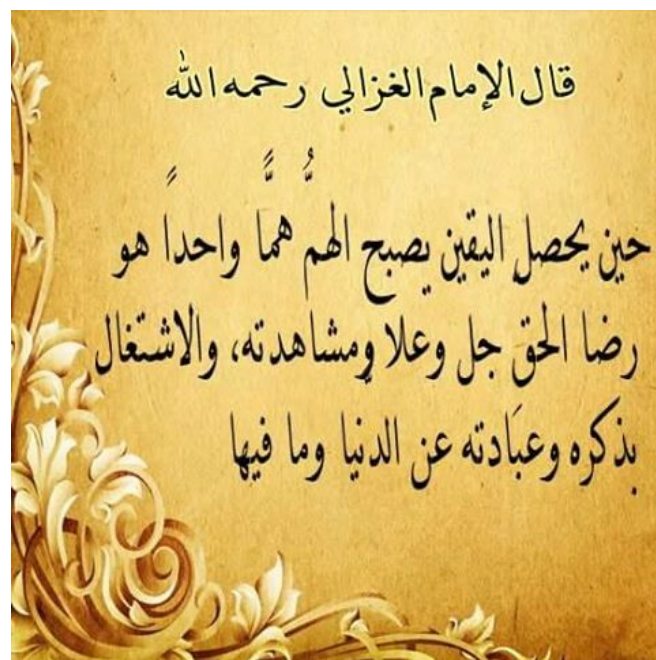 قال الإمام الغزالي رحمه الله
حين يحصل اليقين يصبح الهمُّ همًّا واحداً هو
رضا الحق جل وعلا ومشاهدته، والاشتغال
بذكره وعبَادته عن الدنيا وما فيها